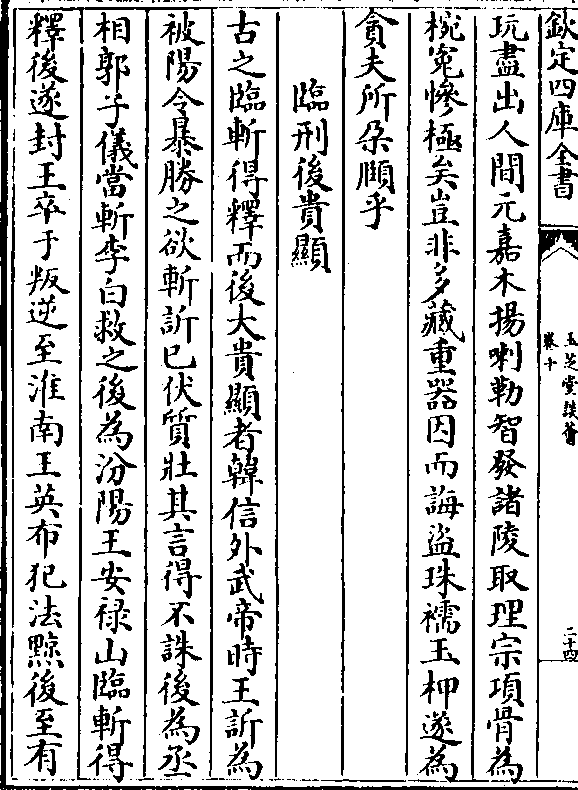 欽定四庫全書
玉芝堂談薈
卷十
二十四
玩盡出人間元嘉木揚喇勒智發諸陵取理宗項骨為
椀寃慘極矣豈非多藏重器因而誨盜珠襦玉柙遂為
貪夫所朶頤乎
臨刑後貴顯
古之臨斬得釋而後大貴顯者韓信外武帝時王訢為
被陽令暴勝之欲斬訢已伏質壯其言得不誅後為丞
相郭子儀當斬李白救之後為汾陽王安禄山臨斬得
釋後遂封王卒于叛逆至淮南王英布犯法黥後至有